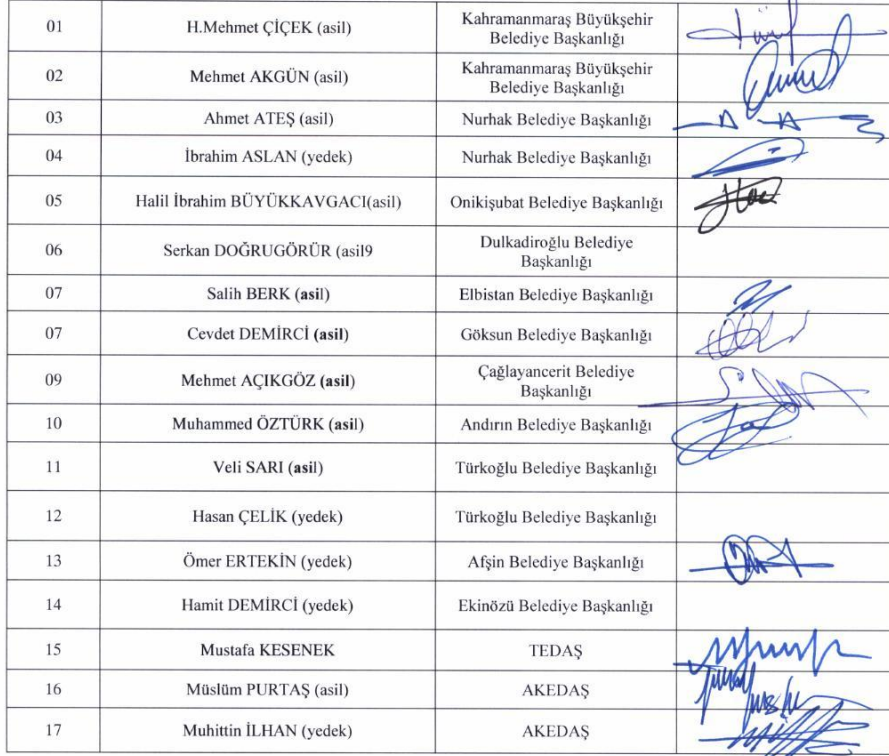 01 H.Mehmet ÇİÇEK (asil) Kahramanmaraş Büyükşehir
Belediye Başkanlığı
02 Mehmet AKGÜN (asil) Kahramanmaraş Büyükşehir
Belediye Başkanlığı
03 Ahmet ATEŞ (asil) Nurhak Belediye Başkanlığı
04 İbrahim ASLAN (yedek) Nurhak Belediye Başkanlığı
05 Halil İbrahim BÜYÜKKAVGACI(asil) Onikişubat Belediye Başkanlığı
06 Serkan DOĞRUGÖRÜR (asil9 Dulkadiroğlu Belediye
Başkanlığı
07 Salih BERK (asil) Elbistan Belediye Başkanlığı
07 Cevdet DEMİRCİ (asil) Göksun Belediye Başkanlığı
09 Mehmet AÇIKGÖZ (asil) Çağlayancerit Belediye
Başkanlığı
10 Muhammed ÖZTÜRK (asil) Andırın Belediye Başkanlığı
11 Veli SARI (asil) Türkoğlu Belediye Başkanlığı
12 Hasan ÇELİK (yedek) Türkoğlu Belediye Başkanlığı
13 Ömer ERTEKİN (yedek) Afşin Belediye Başkanlığı
14 Hamit DEMİRCİ (yedek) Ekinözü Belediye Başkanlığı
15 Mustafa KESENEK TEDAŞ
16 Müslüm PURTAŞ (asil) AKEDAŞ
17 Muhittin İLHAN (yedek) AKEDAŞ